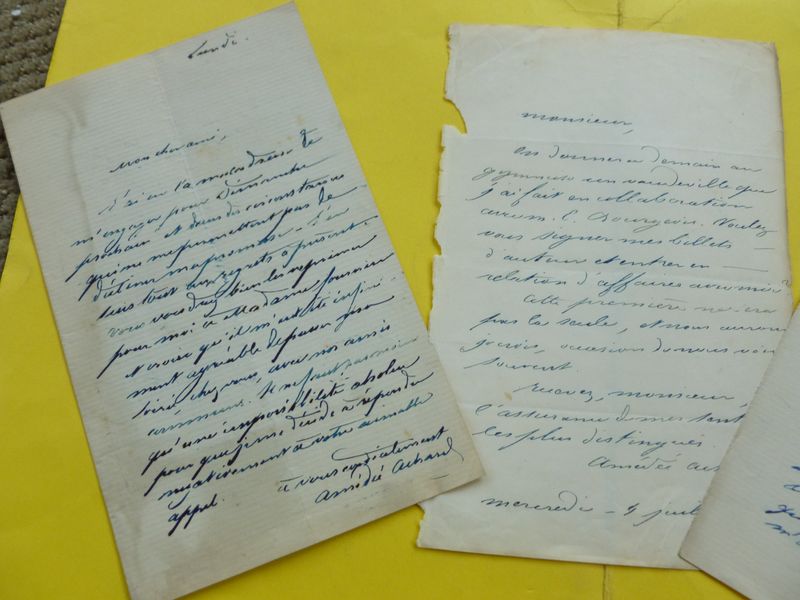 Lundi.
Mon cher ami,
J'ai eu la maladresse de
m'engager pour Dimanche
prochain et dans des circonstances
qui ne me permettent pas de
ma promesse - J'en
suis tout aux regrets à présent.
Vous voudrez bien les exprimer
pour moi à Madame fournier
et croire qu'il m'eut été infini-
ment agréable de passer une
soirée, chez vous, avec nos amis
communs. Il ne faut pas moins
qu'une impossibilité absolue
pour que je me décide à répondre
négativement à votre aimable
appel.
à vous cordialement
amédée achard
monsieur,
on donnera demain au
gymnase un vaudeville que
j'ai fait en collaboration
avec m. E. Bourgeois. Voulez
vous signer mes billets
d'auteur et entrer en
relation d'affaires avec moi?
cette première ne sera
pas la seule, et nous aurons
je crois, occasion de nous voir
souvent.
recevez, monsieur,
l'assurance de mes sent
les plus distingués
amédée ach
mercredi - 4 juil